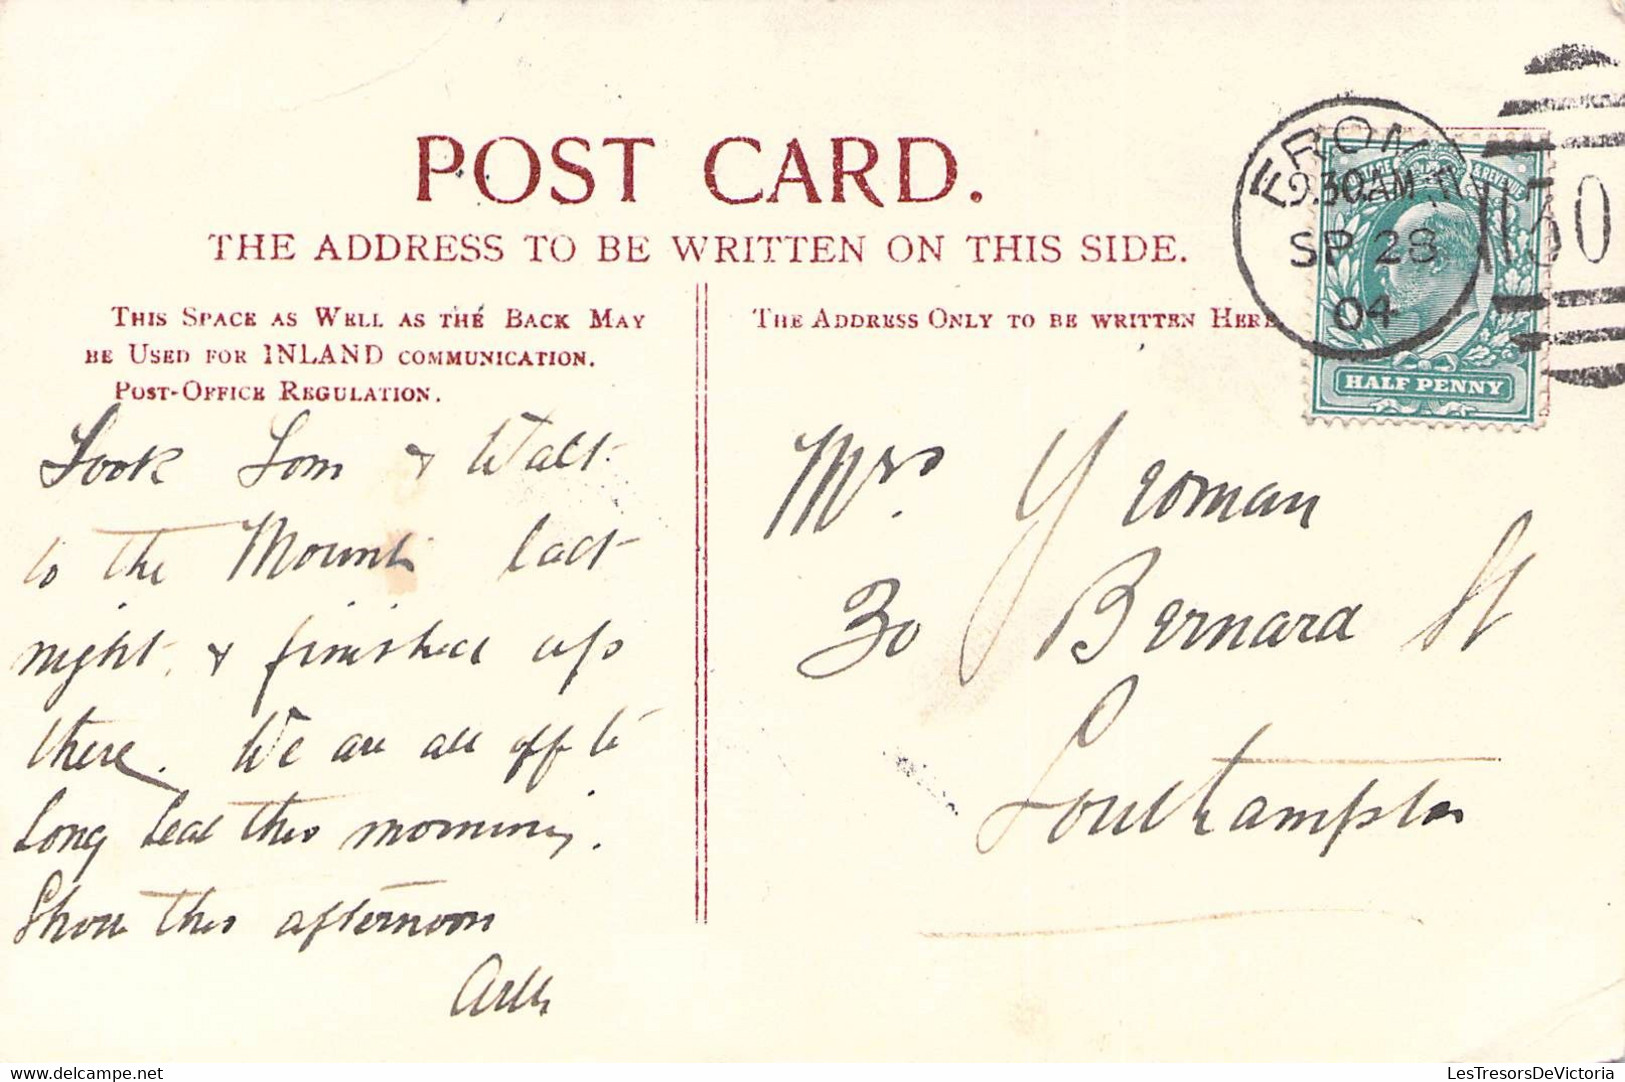 POST CARD.
THE ADDRESS TO BE WRITTEN ON THIS SIDE.
THIS SPACE AS WELL AS THE BACK MAY
BE USED FOR INLAND COMMUNICATION.
POST-OFFICE REGULATION.
THE ADDRESS ONLY TO BE WRITTEN HERE
FROME
9.30AM
SP 28
04
HALF PENNY
Took Tom & Walt
to the Mount last
night, & finished up
there. We are all off to
Long Leat this morning.
Show this afternoon
Mrs. Yeoman
30 Bernard St
Southampton
LesTresorsDeVictoria